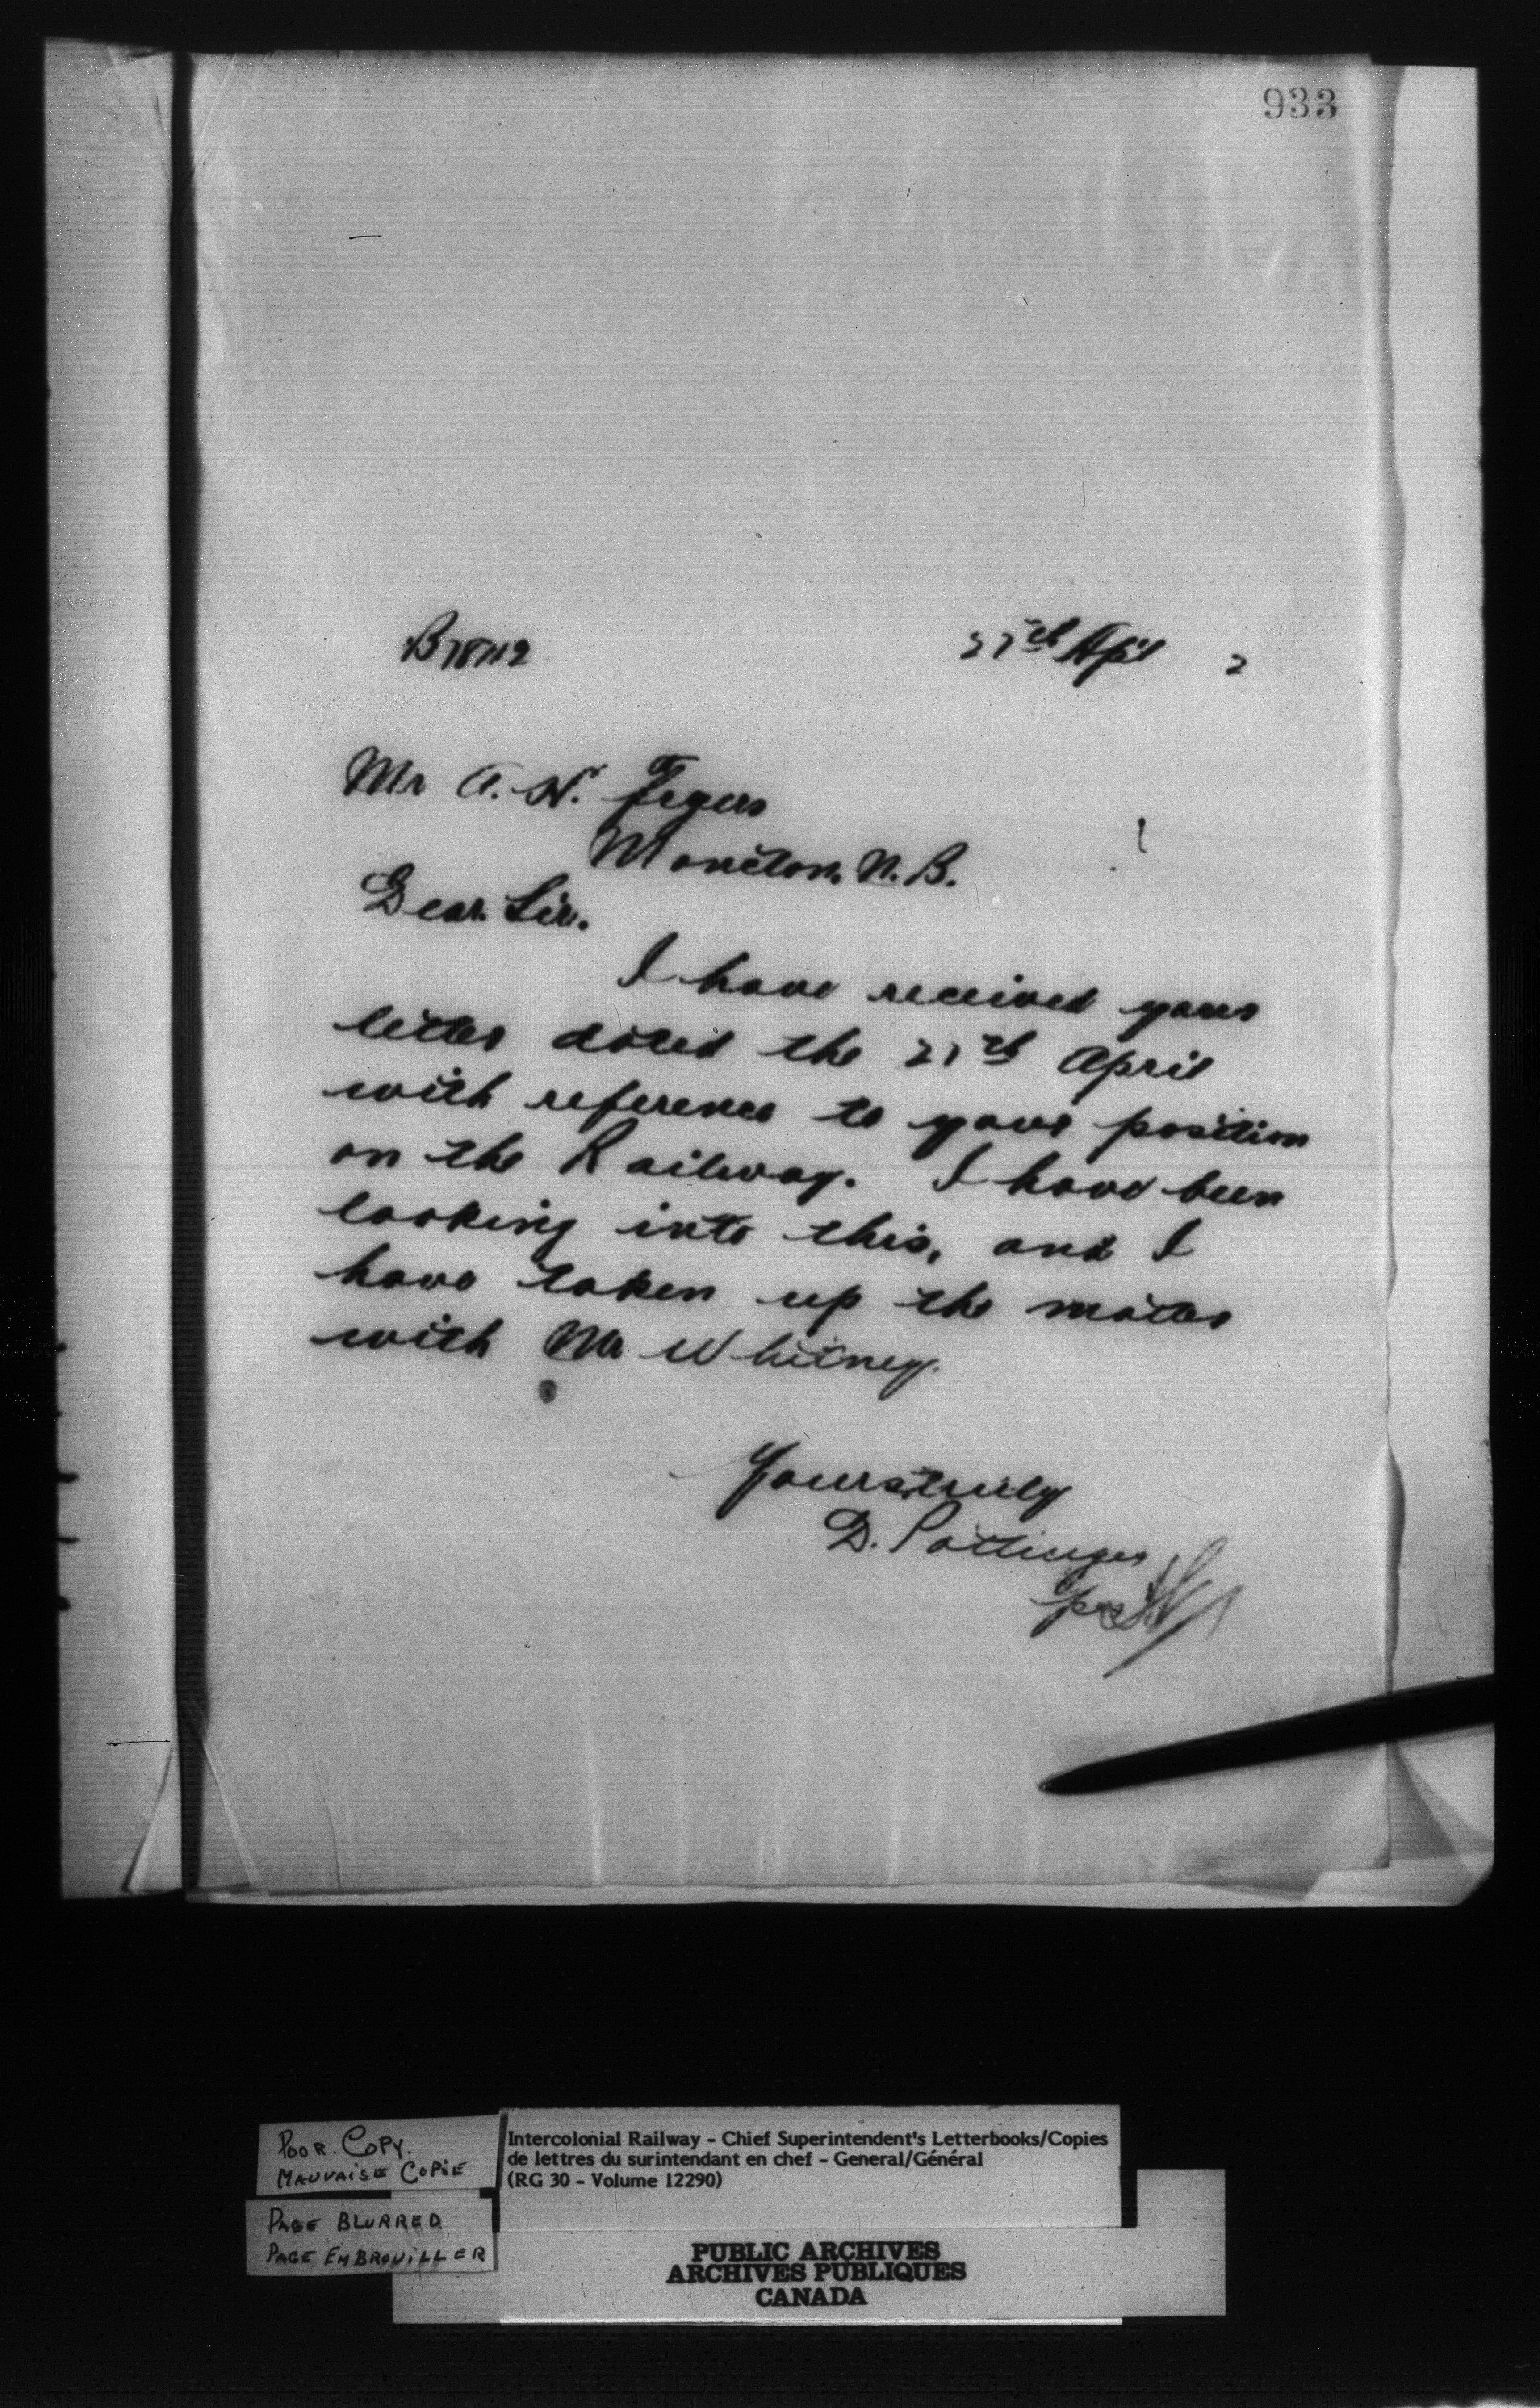 933
B78112
April 2
Mr A. H.
Moncton, N.B.
Dear Sir.
I have received your
letter dated the April
with reference to your position
on the Railway. I have been
looking into this, and I
have taken up the matter
with Mr Whitney.
Yours truly
D. Pottinger
per
POOR COPY.
MAUVAISE COPIE
PAGE BLURRED
PAGE EMBROUILLER
Intercolonial Railway - Chief Superintendent's Letterbooks/Copies
de lettres du surintendant en chef - General/Général
(RG 30 - Volume 12290)
PUBLIC ARCHIVES
ARCHIVES PUBLIQUES
CANADA